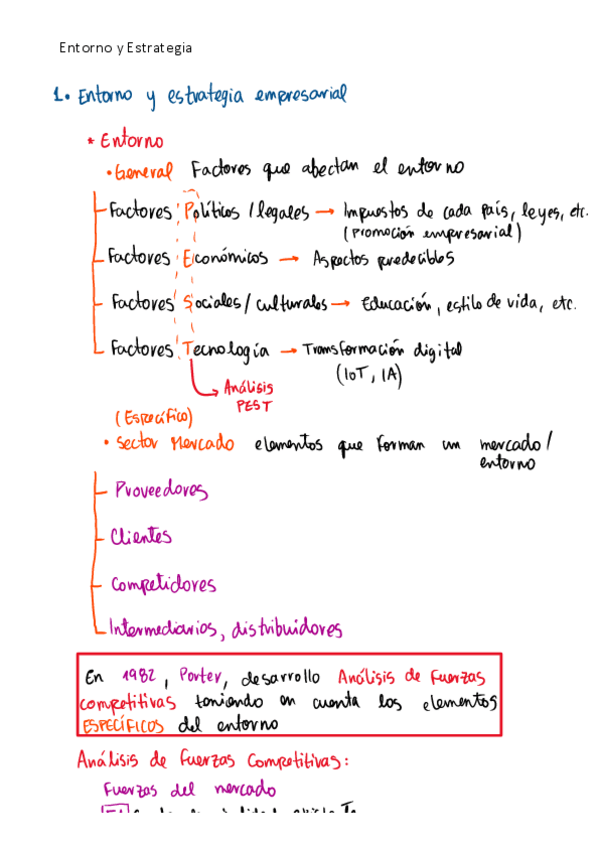 Entorno y Estrategia
1. Entorno y estrategia empresarial
* Entorno
• General Factores que abectan el entorno
Factores Políticos / legales → Impuestos de cada país, leyes, etc.
(Promoción empresarial)
Factores Económicos → Aspectos predecibles
Factores Sociales / culturales → Educación, estilo de vida, etc.
Factores Tecnología → Transformación digital
(IoT, IA)
Análisis
PEST
(Específico)
• Sector Mercado elementos que forman un mercado /
entorno
Proveedores
Clientes
Competidores
Intermediarios, distribuidores
En 1982, Porter, desarrollo Análisis de Fuerzas
competitivas teniendo en cuenta los elementos
ESPECÍFICOS del entorno
Análisis de Fuerzas Competitivas:
Fuerzas del mercado